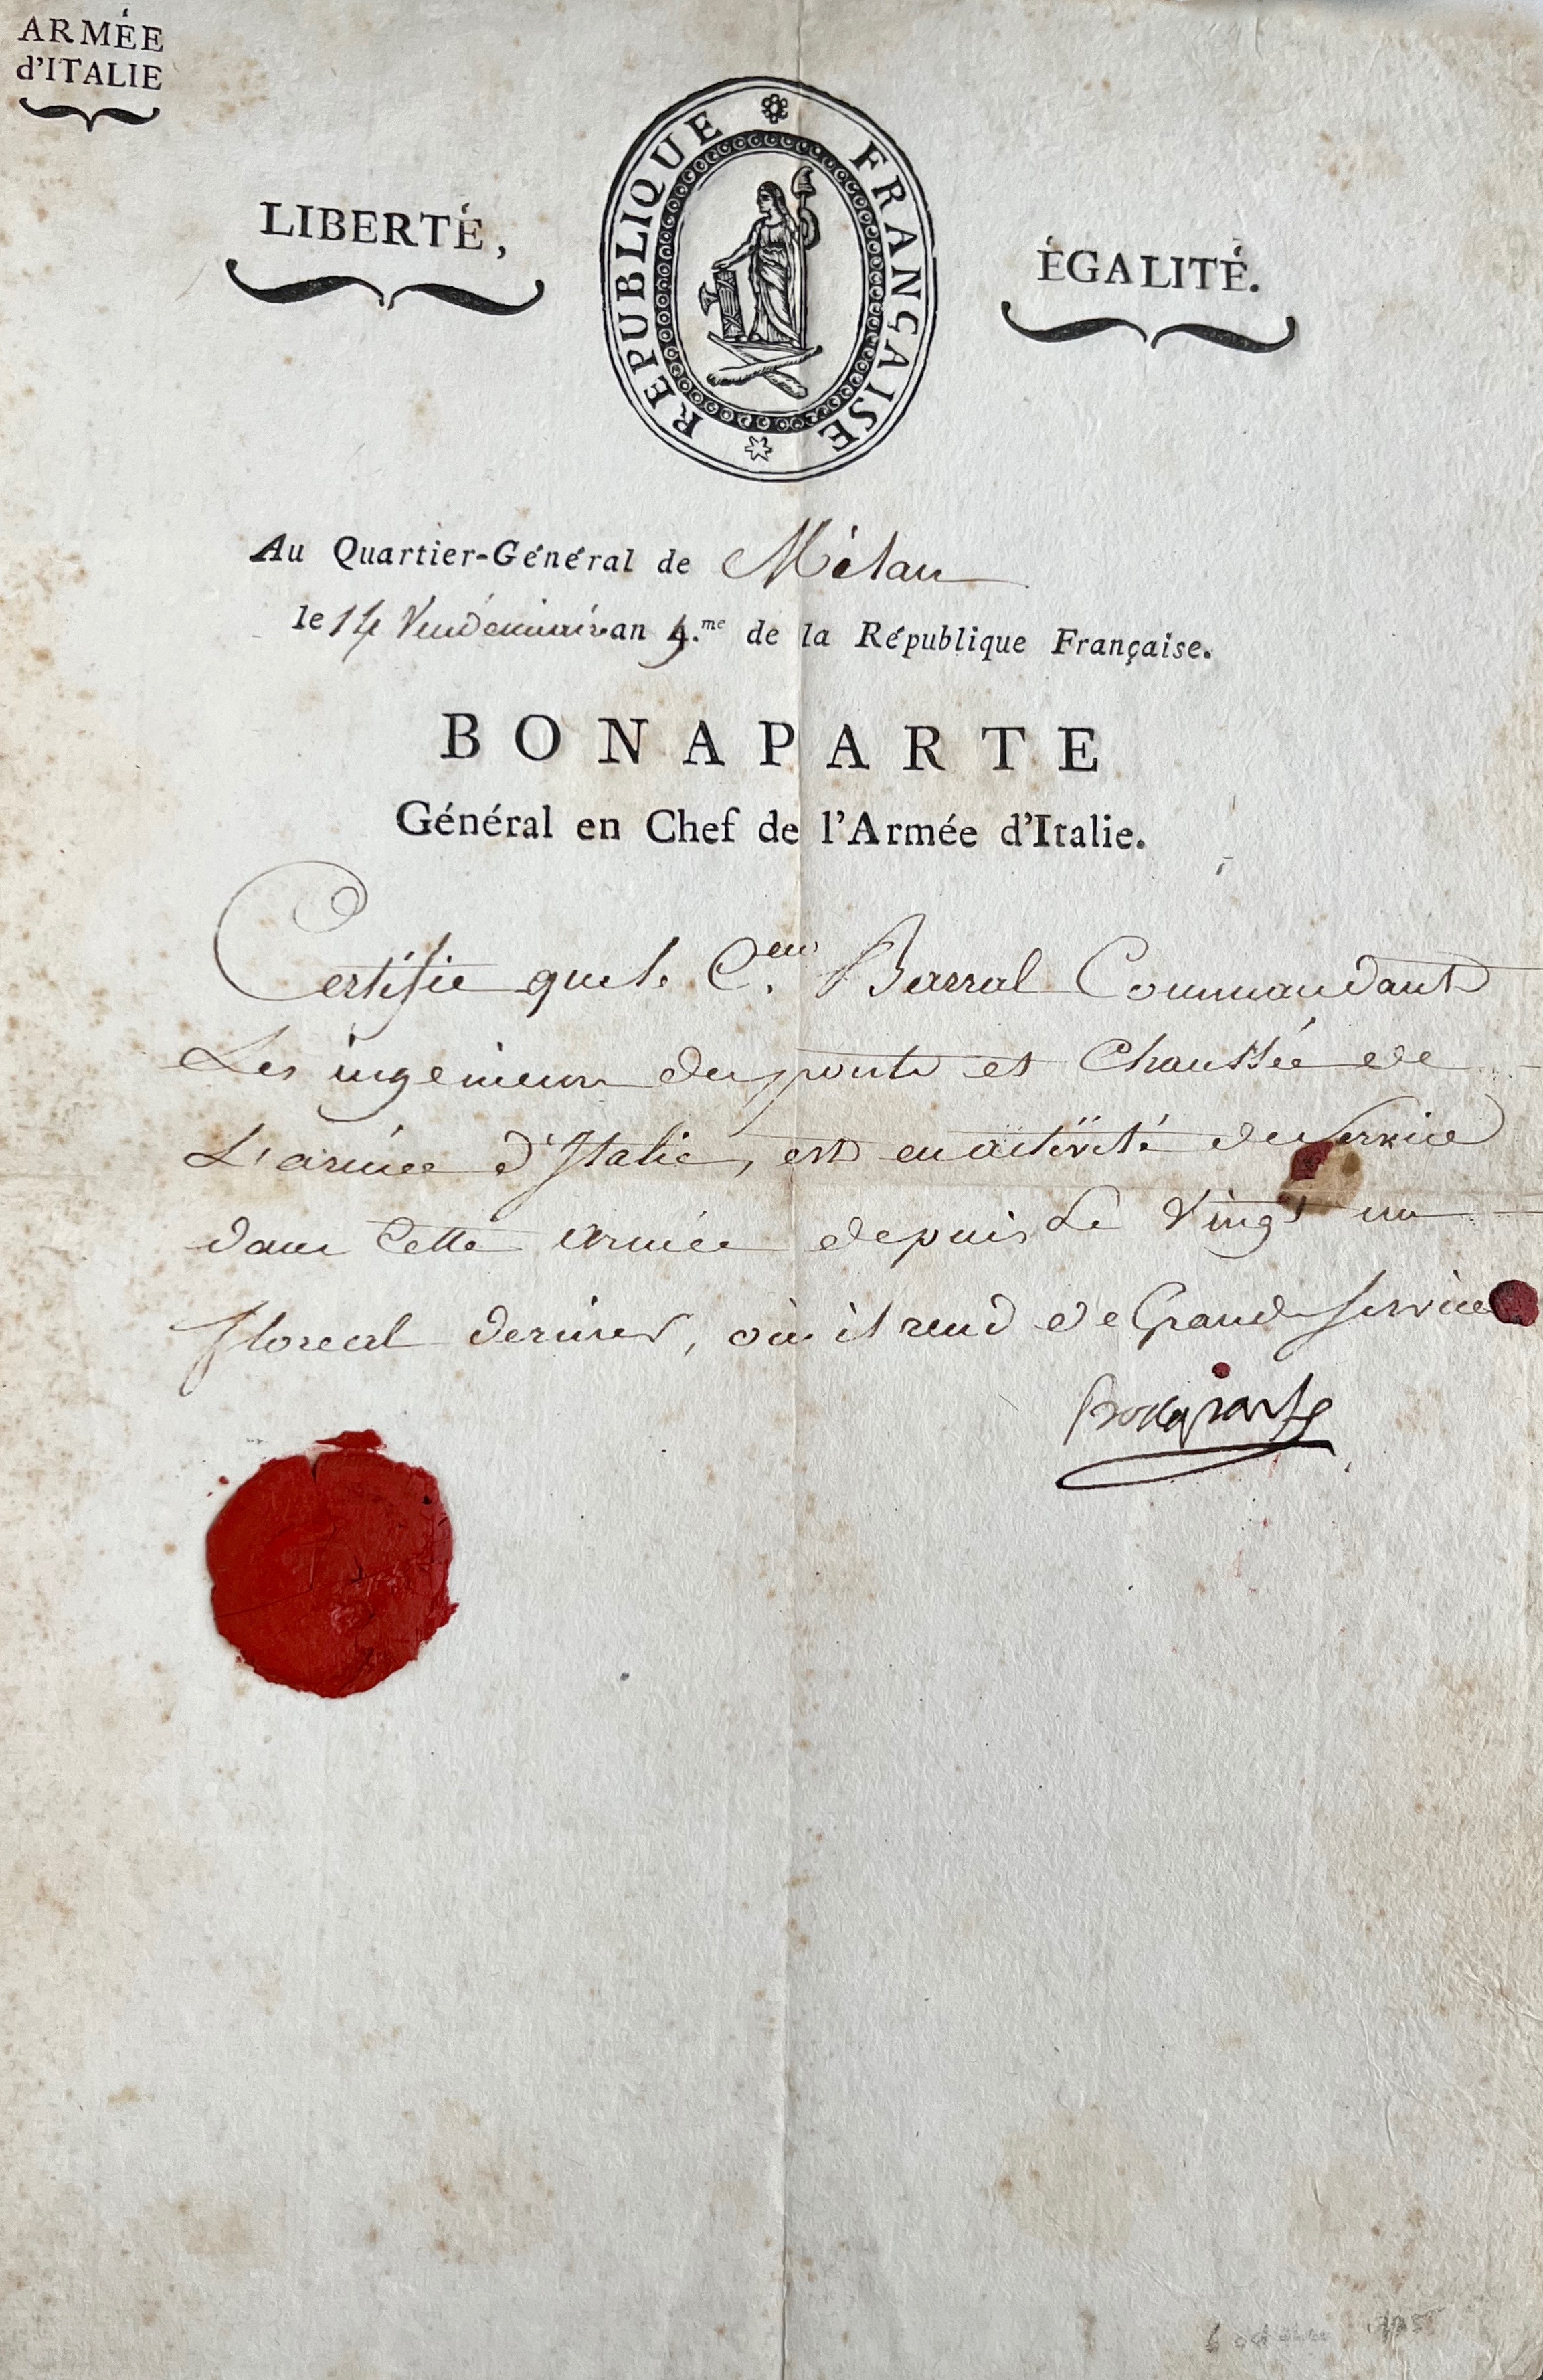 ARMÉE
d'ITALIE
RÉPUBLIQUE FRANÇAISE
LIBERTÉ,
ÉGALITÉ.
Au Quartier-Général de Milan
le 14 Vendémiaire an 5.me de la République Française.
BONAPARTE
Général en Chef de l'Armée d'Italie.
Certifie que le C.en Barral Commandant
Les ingenieurs des ponts et Chaussée de
L'armée d'Italie, est en activité de Service
dans Cette armée depuis Le Vingt un
floreal dernier, où il rend de Grands services
Bonaparte
6 octobre